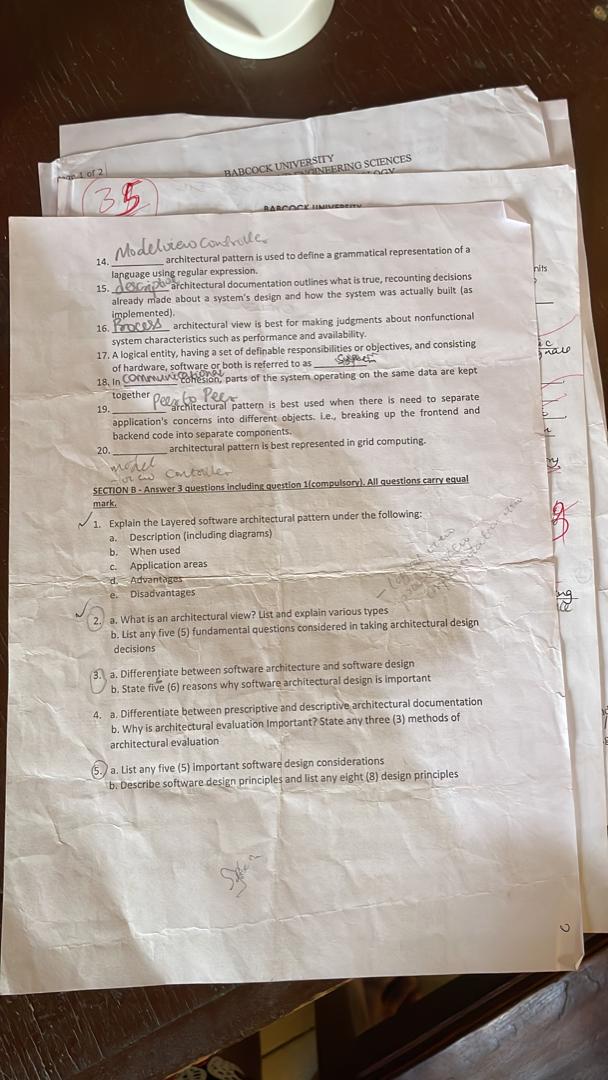 1 of 2
BABCOCK UNIVERSITY
ENGINEERING SCIENCES
35
BABCOCK UNIVERSITY
Model view Controller
14. ________ architectural pattern is used to define a grammatical representation of a
language using regular expression.
15. architectural documentation outlines what is true, recounting decisions
already made about a system's design and how the system was actually built (as
implemented).
16. Process architectural view is best for making judgments about nonfunctional
system characteristics such as performance and availability.
17. A logical entity, having a set of definable responsibilities or objectives, and consisting
of hardware, software or both is referred to as
18. In communicational cohesion, parts of the system operating on the same data are kept
together
Peer to Peer
19. ________ architectural pattern is best used when there is need to separate
application's concerns into different objects. i.e., breaking up the frontend and
backend code into separate components.
20. ________ architectural pattern is best represented in grid computing.
model
view controller
SECTION B - Answer 3 questions including question 1(compulsory). All questions carry equal
mark.
1. Explain the Layered software architectural pattern under the following:
a. Description (including diagrams)
b. When used
c. Application areas
d. Advantages
e. Disadvantages
2. a. What is an architectural view? List and explain various types
b. List any five (5) fundamental questions considered in taking architectural design
decisions
3. a. Differentiate between software architecture and software design
b. State five (6) reasons why software architectural design is important
4. a. Differentiate between prescriptive and descriptive architectural documentation
b. Why is architectural evaluation Important? State any three (3) methods of
architectural evaluation
5. a. List any five (5) important software design considerations
b. Describe software design principles and list any eight (8) design principles